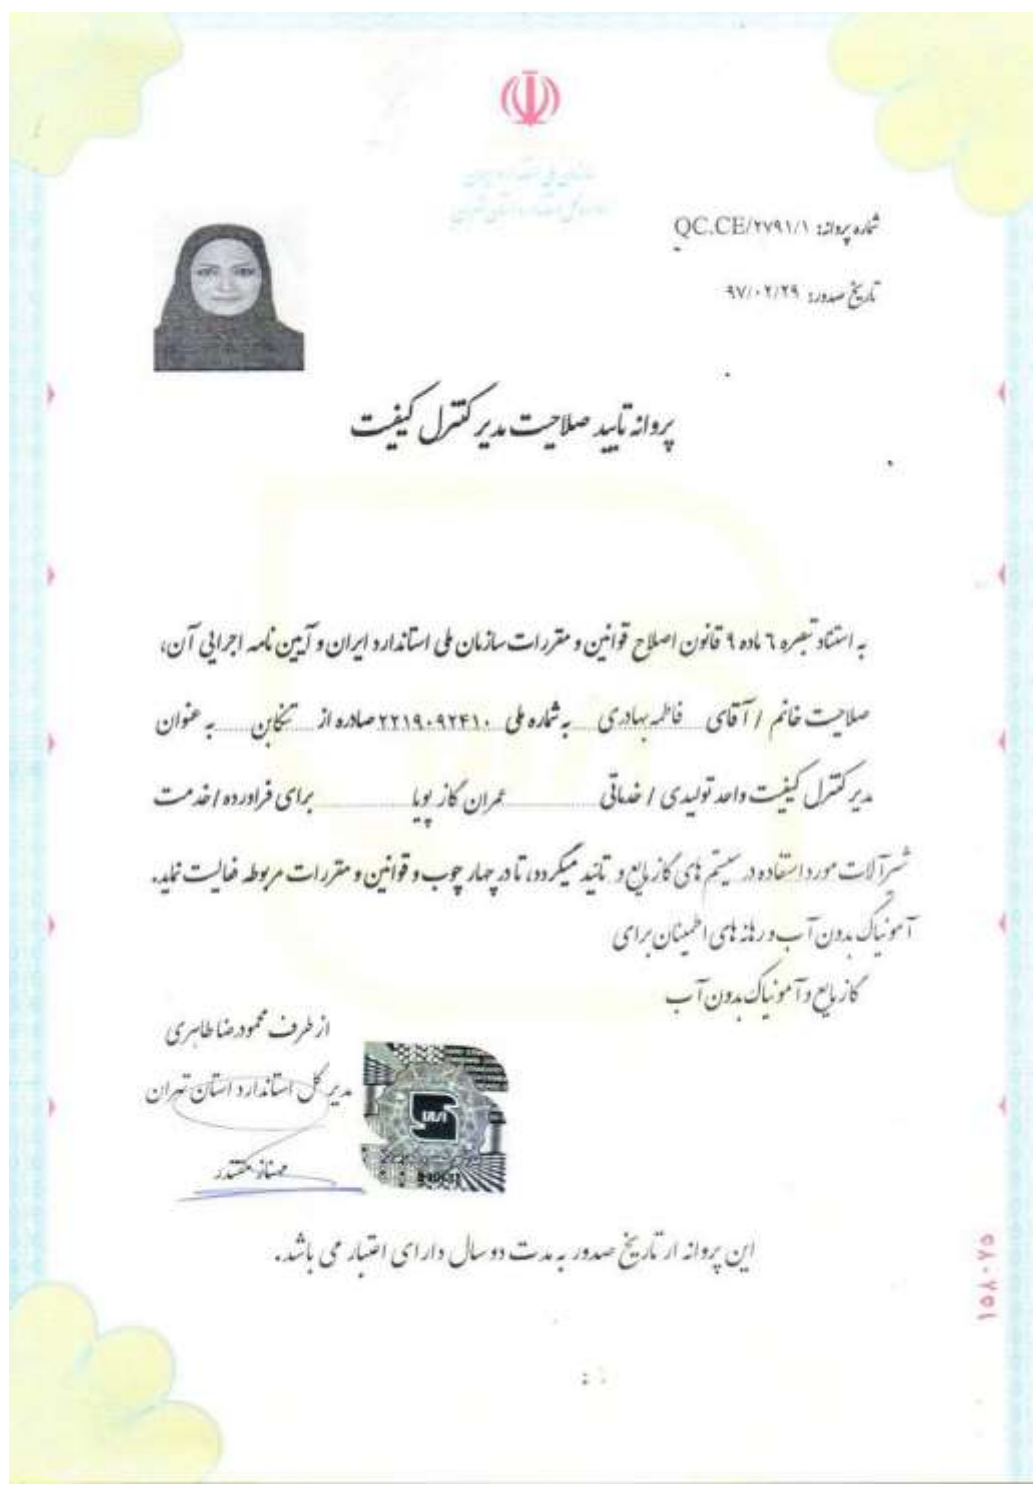 سازمان ملی استاندارد ایران
اداره کل استاندارد استان تهران
شماره پروانه: QC.CE/۲۷۹۱/۱
تاریخ صدور: ۹۷/۰۲/۲۹
پروانه تایید صلاحیت مدیر کنترل کیفیت
به استناد تبصره ٦ ماده ۹ قانون اصلاح قوانین و مقررات سازمان ملی استاندارد ایران و آیین نامه اجرایی آن،
صلاحیت خانم / آقای فاطمه بهادری به شماره ملی ۲۲۱۹۰۹۲۴۱۰ صادره از تنکابن به عنوان
مدیر کنترل کیفیت واحد تولیدی / خدماتی عمران گاز پویا برای فراورده / خدمت
شیرآلات مورد استفاده در سیستم های گاز مایع و تائید میگردد، تا در چهار چوب و قوانین و مقررات مربوطه فعالیت نماید.
آمونیاک بدون آب و رهانه های اطمینان برای
گاز مایع و آمونیاک بدون آب
از طرف محمودرضا طاهری
مدیر کل استاندارد استان تهران
مهناز مقتدر
این پروانه از تاریخ صدور به مدت دو سال دارای اعتبار می باشد.
۱۵۸۰۸۵